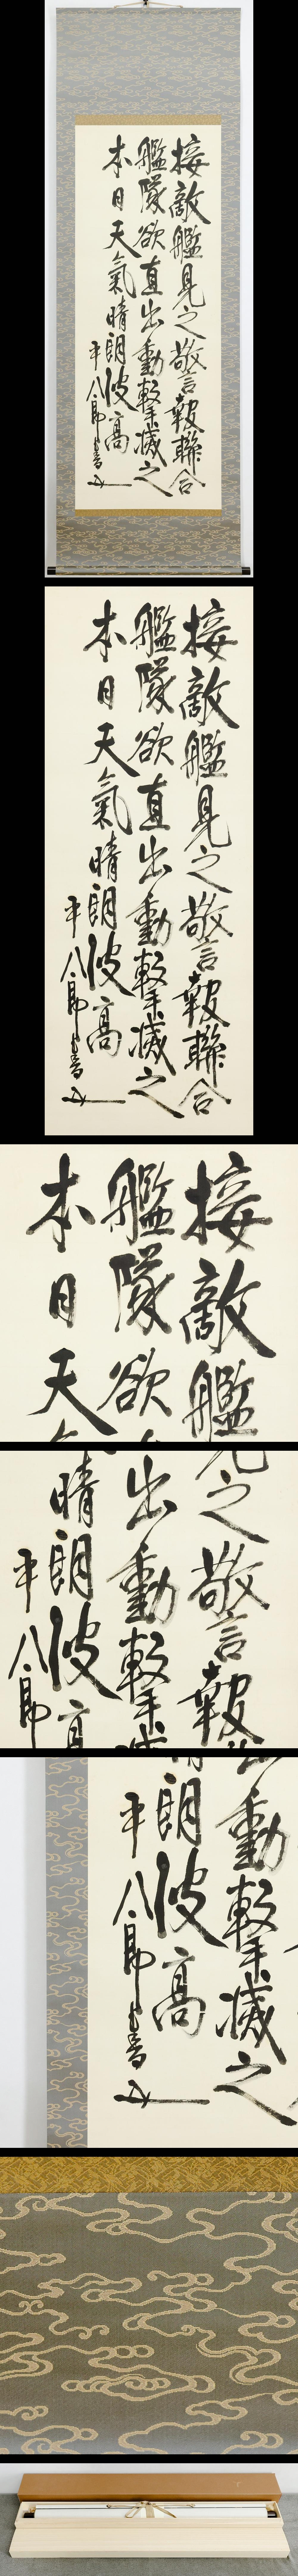 接敵艦見之警報聯合
艦隊欲直出動撃滅之
本日天氣晴朗波高
平八郎書